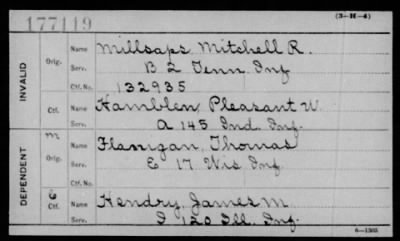 177119
(3-H-4)
INVALID
Orig. Name Millsaps, Mitchell R.
Serv. B 2 Tenn Inf
Ctf. No. 132935
Ctf. Name Hamblen, Pleasant W.
Serv. A 145 Ind. Inf.
DEPENDENT
M
Orig. Name Flanigan, Thomas
Serv. E 17 Wis Inf
Ctf. No.
C
Ctf. Name Hendry, James M
Serv. I 120 Ill. Inf.
6-1303